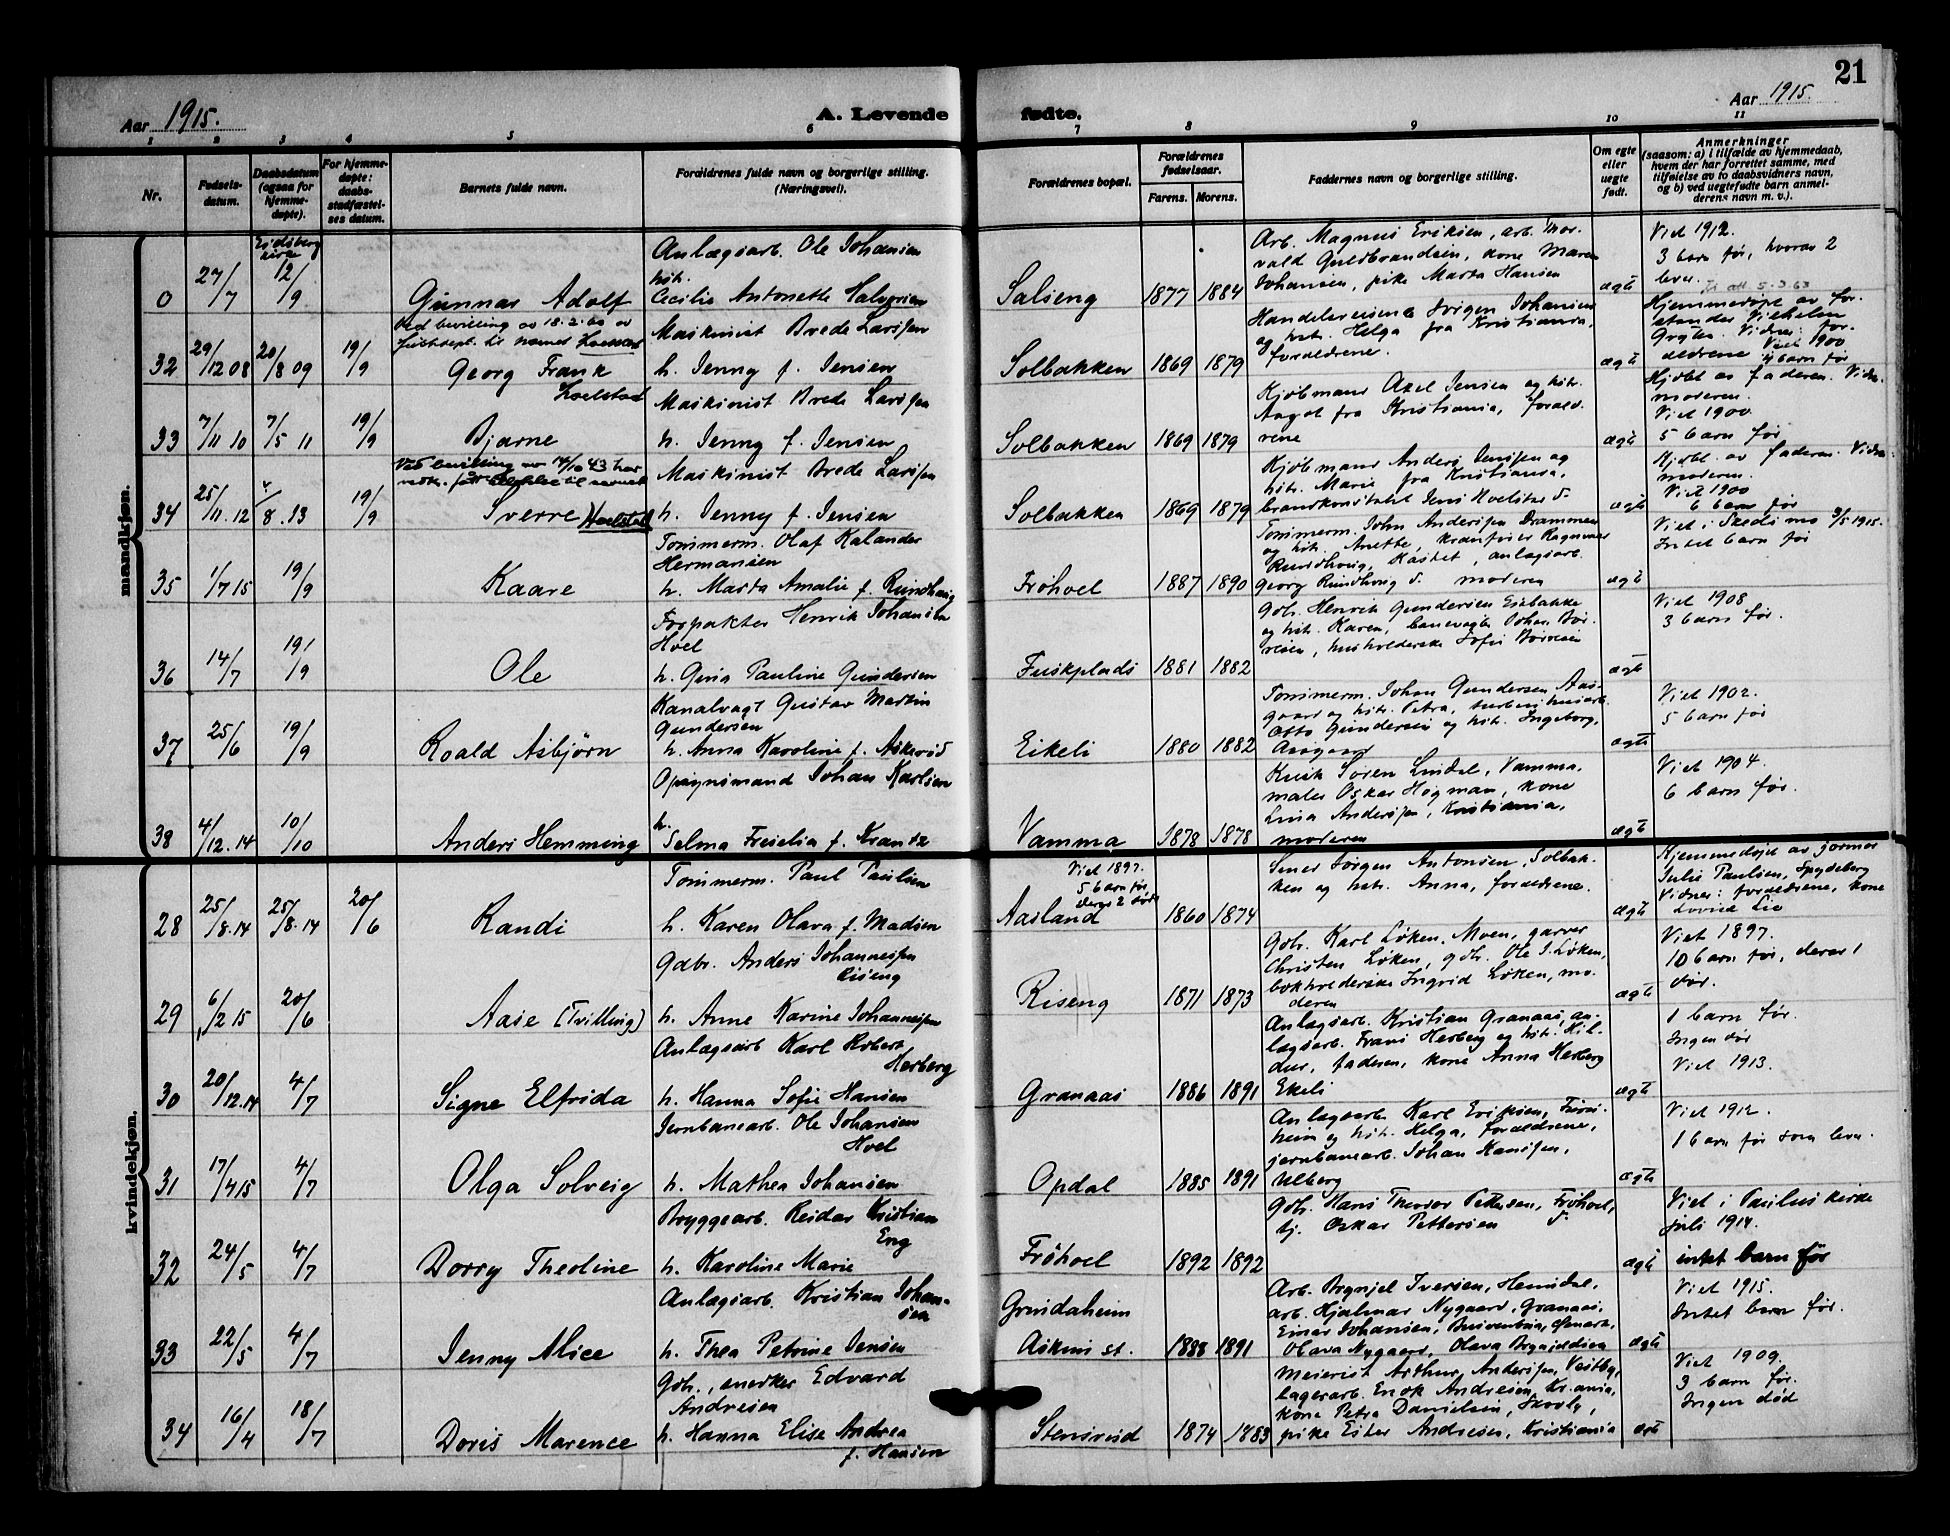 21
Aar 1915.
A. Levende fødte.
Aar 1915.
1 2 3 4 5 6 7 8 9 10 11
Nr.
Fødsels-
datum.
Daabsdatum
(ogsaa for
hjemme-
døpte).
For hjemme-
døpte:
daabs-
stadfæstel-
ses datum.
Barnets fulde navn.
Forældrenes fulde navn og borgerlige stilling.
(Næringsvei).
Forældrenes bopæl.
Forældrenes
fødselsaar.
Farens. Morens.
Faddernes navn og borgerlige stilling.
Om egte
eller
uegte
født.
Anmerkninger
(saasom: a) i tilfælde av hjemmedaab,
hvem der har forrettet samme, med
tilføielse av to daabsvidners navn,
og b) ved uegtefødte barn anmel-
derens navn m. v.).
mandkjøn.
0
27/7
Eidsberg
kirke
12/9
Gunnar Adolf
Anlægsarb. Ole Johansen
hst.
Cecilie Antonette Halvorsen
Salseng
1877 1884
Arb. Magnus Eriksen, arb. Thor-
vald Guldbrandsen, kone Maren
Johansen, pike Marta Hansen
ægte
Viet 1912.
3 barn før, hvorav 2
lever.
32
29/12 08
20/8 09
19/9
Ved bevilling av 18.2.60 av
til navnet Hoelstad
Georg Frank
Hoelstad
Maskinist Brede Larssen
h. Jenny f. Jensen
Solbakken
1869 1879
Handelsreisende Jørgen Johansen
og hst. Helga fra Kristiania,
forældrene.
ægte
Hjemmedøpt av for-
stander Vilhelm
Vidner: for-
ældrene Viet 1900
4 barn før
33
7/11 10
7/5 11
19/9
Bjarne
Maskinist Brede Larssen
h. Jenny f. Jensen
Solbakken
1869 1879
Kjøbmann Axel Jensen og hst.
Aagot fra Kristiania, foræld-
rene
ægte
Hjdøbt av faderen. Vidn.
moderen.
Viet 1900
5 barn før
34
25/11.12
/8.13
19/9
Ved bevilling av 14/10 43 har
til navnet
Sverre Hoelstad
Maskinist Brede Larssen
h. Jenny f. Jensen
Solbakken
1869 1879
Kjøbmann Anders Jensen og
hst. Marie fra Kristiania,
brandkonstabel Jens Hoelstad
ægte
Hjdøbt. av faderen. Vidn:
moderen.
Viet 1900
6 barn før
35
1/7 15
19/9
Kaare
Tømmerm. Olaf Kalander
Hermansen
h. Marta Amalie f. Rundhaug
Frøhvel
1887 1890
Tømmerm. John Anderssen Drammen
og hst. Anette, kranfører Ragnvald
Rundhaug, Kastet, anlægsarb.
Georg Rundhaug d. moderen
ægte
Viet i Skedsmo 9/5 1915.
Intet barn før
36
14/7
19/9
Ole
Forpakter Henrik Johansen
Hvel
h. Gina Pauline Gundersen
Fuskplads
1881 1882
Gbr. Henrik Gundersen Eikebakke
og hst. Karen, banevogter Johan Bor-
resen, husholderske Sofie Borresen
ægte
Viet 1908
3 barn før.
37
25/6
19/9
Roald Asbjørn
Kanalvagt Gustav Martin
Gundersen
h. Anna Karoline f. Askerød
Eikeli
1880 1882
Tømmerm. Johan Gundersen, Aas-
gaard og hst. Petra, turbinhusarb.
Otto Gundersen og hst. Ingeborg,
Aasgaard
ægte
Viet 1902.
5 barn før
38
4/12.14
10/10
Anders Hemming
Opsynsmand Johan Karlsen
h.
Selma Freselia f. Krantz
Vamma
1878 1878
Kusk Søren Lindal, Vamma,
maler Oskar Hogman, kone
Lina Anderssen, Kristiania,
moderen
ægte
Viet 1904.
6 barn før.
kvindekjøn.
28
25/8.14
25/8.14
20/6
Randi
Tømmerm. Paul Paulsen
h. Karen Olava f. Madsen
Viet 1897.
5 barn før
derav 2 døde
Aasland
1860 1874
Smed Jørgen Antonsen, Solbak-
ken og hst. Anna, forældrene.
ægte
Hjemmedøpt av jormor
Julie Paulsen, Spydeberg
Vidner: forældrene, kone
Lovise Lie
29
6/2 15
20/6
Aase (Tvilling)
Gdbr. Anders Johannessen
Riseng
h. Anne Karine Johannessen
Riseng
1871 1873
Gbr. Karl Løken, Moen, garver
Christen Løken, gdr. Ole J. Løken,
bokholderske Ingrid Løken, mo-
deren
ægte
Viet 1897.
10 barn før, derav 1
død.
30
20/12.14
4/7
Signe Elfrida
Anlægsarb Karl Robert
Herberg
h. Hanna Sofie Hansen
Granaas
1886 1891
Anlægsarb. Kristian Granaas, an-
lægsarb. Frans Herberg og hst. Hil-
dur, faderen, kone Anna Herberg
Ekeli
ægte
1 barn før.
Ingen død
Viet 1913.
31
17/4 15
4/7
Olga Solveig
Jernbanearb. Ole Johansen
Hvel
h. Mathea Johansen
Opdal
1885 1891
Anlægsarb. Karl Eriksen, Furu-
heim og hst. Helga, forældrene,
jernbanearb. Johan Hanssen,
Ulberg
ægte
Viet 1912.
1 barn før som lever.
32
24/5
4/7
Dorry Theoline
Bryggearb. Reidar Kristian
Eng
h. Karoline Marie
Frøhvel
1892 1892
Gbr. Hans Theodor Pettersen, Frøhvel,
tj. Oskar Pettersen d.
ægte
Viet i Paulus kirke
juli 1914.
intet barn før
33
22/5
4/7
Jenny Alice
Anlægsarb. Kristian Johan-
sen
h. Thea Petrine Jensen
Grindaheim
Askims st.
1888 1891
Arb. Brynjel Iversen, Hemdal,
arb. Hjalmar Nygaard, Granaas,
Einar Johansen,
Olava Nygaard, Olava Brynjeldsen
ægte
Viet 1915.
Intet barn før.
34
16/4
18/7
Doris Marence
Gbr., snedker Edvard
Andresen
h. Hanna Elise Andrea
f. Hansen
Stensrud
1874 1883
Meierist Arthur Anderssen, Vestby,
lagerarb. Enok Andresen, Kr.ania,
kone Petra Danielsen, Skovly,
pike Ester Andresen, Kristiania
ægte
Viet 1909.
3 barn før.
Ingen død